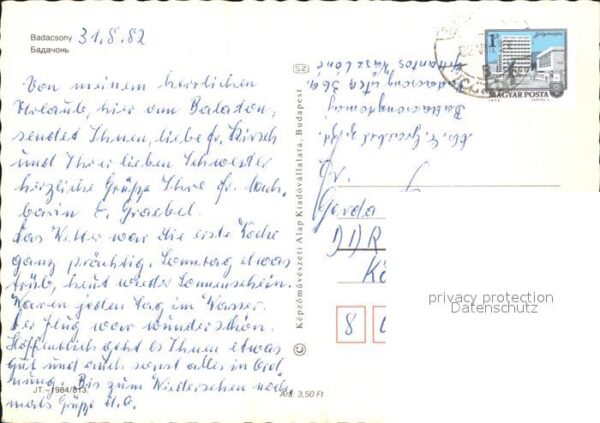 Badacsony 31.8.82
Бадачонь
Von meinem herrlichen
Urlaub, hier am Balaton,
sendet Ihnen, liebe Fr. Kirsch
und Ihrer lieben Schwester
herzliche Grüße Ihre Fr. Nach-
barin E. Graebel.
Das Wetter war die erste Woche
ganz prächtig, Sonntag etwas
trüb, heut wieder Sonnenschein.
Waren jeden Tag im Wasser.
Der Flug war wunderschön.
Hoffentlich geht es Ihnen etwas
gut und auch sonst alles in Ord
nung. Bis zum Wiedersehen noch
mals Grüße
JT.-1984/813.
SZ
© Képzőművészeti Alap Kiadóvállalata, Budapest
Ára: 3,50 Ft
1Ft
MAGYAR POSTA
Badacsonytomaj
utca 36a
Fr.
Gerda
DDR
8
privacy protection
Datenschutz